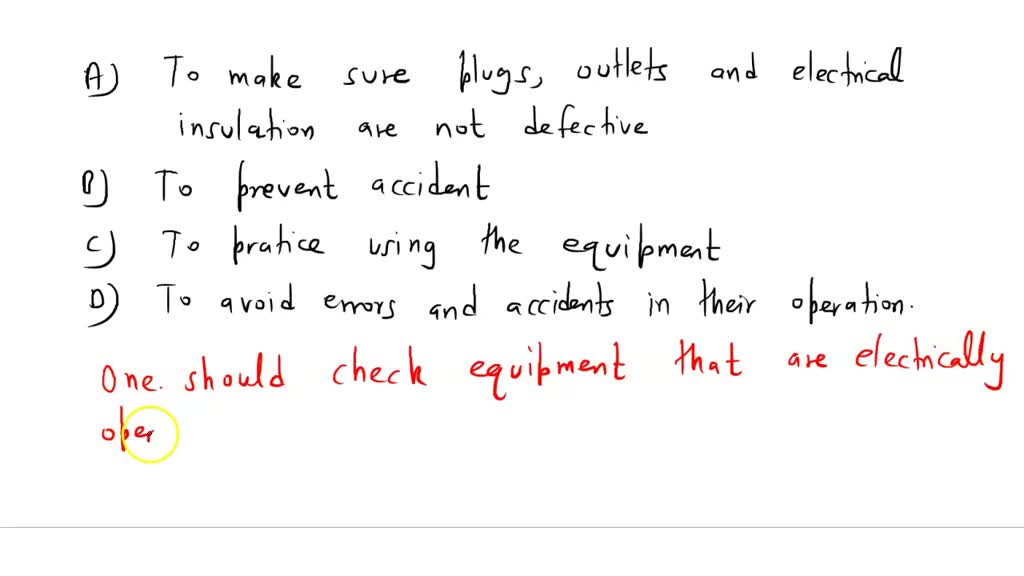 A) To make sure plugs, outlets and electrical
insulation are not defective
B) To prevent accident
C) To pratice using the equipment
D) To avoid errors and accidents in their operation.
One. should check equipment that are electrically
oper